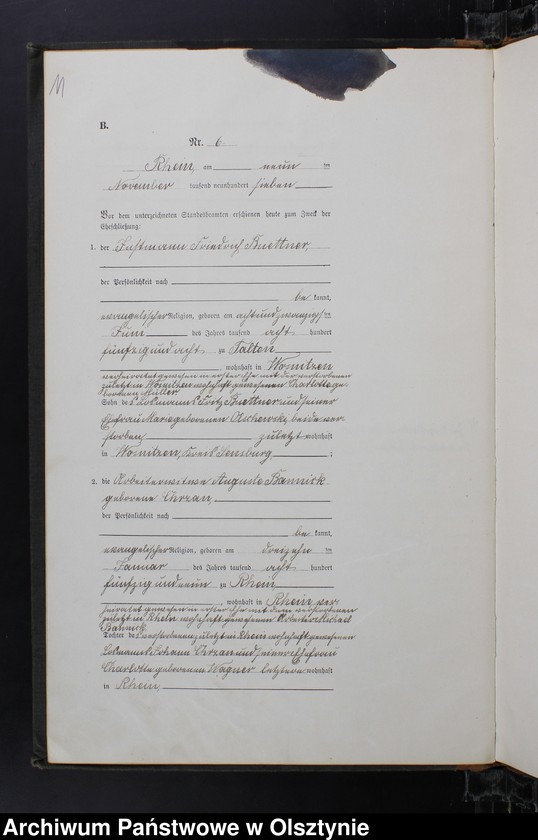 11
B.
Nr. 6.
Rhein, am neun ten
November tausend neunhundert sieben
Vor dem unterzeichneten Standesbeamten erschienen heute zum Zweck der
Eheschließung:
1. der Instmann Friedrich Buettner,
der Persönlichkeit nach
be kannt,
evangelischer Religion, geboren am achtundzwanzigsten
Juni des Jahres tausend acht hundert
fünfzig und acht zu Talten
, wohnhaft in Wosnitzen
verheiratet gewesen in erster Ehe mit der verstorbenen
zuletzt in Wosnitzen wohnhaft gewesenen Charlotte ge-
borenen Müller
Sohn des Losmanns Fritz Buettner und seiner
Ehefrau Marie geborenen beide ver-
storben zuletzt wohnhaft
in Wosnitzen, Kreis Sensburg ;
2. die Arbeiterwitwe Auguste Bannick
geborene Chrzan,
der Persönlichkeit nach
be kannt,
evangelischer Religion, geboren am dreizehn ten
Januar des Jahres tausend acht hundert
fünfzig und neun zu Rhein
, wohnhaft in Rhein, ver-
heiratet gewesen in erster Ehe mit dem verstorbenen
zuletzt in Rhein wohnhaft gewesenen Arbeiter Michael
Bannick
Tochter des verstorbenen zuletzt in Rhein wohnhaft gewesenen
Losmanns Johann Chrzan und seiner Ehefrau
Charlotte geborenen Wagner letztere wohnhaft
in Rhein,
Archiwum Państwowe w Olsztynie